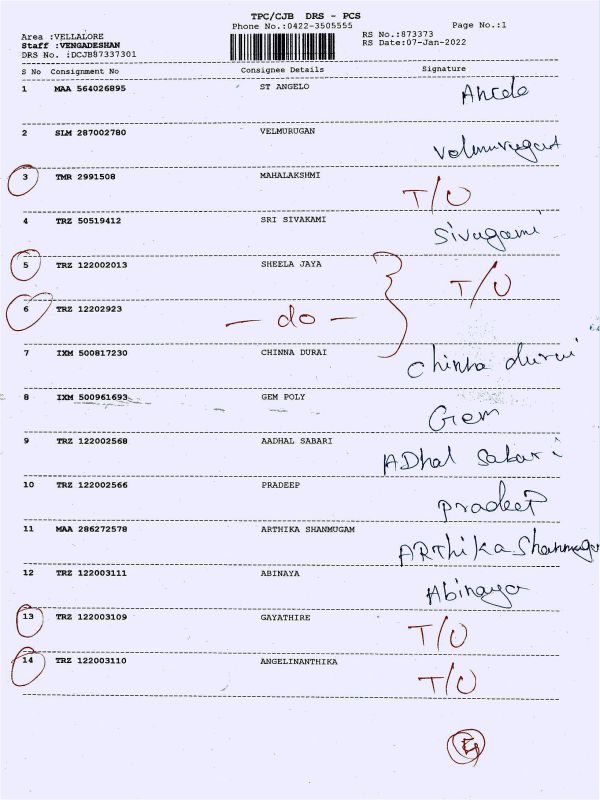 TPC/CJB DRS - PCS
Phone No.:0422-3505555 Page No.:1
Area :VELLALORE RS No.:873373
Staff :VENGADESHAN RS Date:07-Jan-2022
DRS No. :DCJB87337301
S No Consignment No Consignee Details Signature
1 MAA 564026895 ST ANGELO
2 SLM 287002780 VELMURUGAN Velmurugan
3 TMR 2991508 MAHALAKSHMI T/O
4 TRZ 50519412 SRI SIVAKAMI Sivagami
5 TRZ 122002013 SHEELA JAYA T/O
6 TRZ 12202923 - do -
7 IXM 500817230 CHINNA DURAI Chinna durai
8 IXM 500961693 GEM POLY Gem
9 TRZ 122002568 AADHAL SABARI ADhal Sabari
10 TRZ 122002566 PRADEEP pradeep
11 MAA 286272578 ARTHIKA SHANMUGAM ARthika Shanmugam
12 TRZ 122003111 ABINAYA Abinaya
13 TRZ 122003109 GAYATHIRE T/O
14 TRZ 122003110 ANGELINANTHIKA T/O